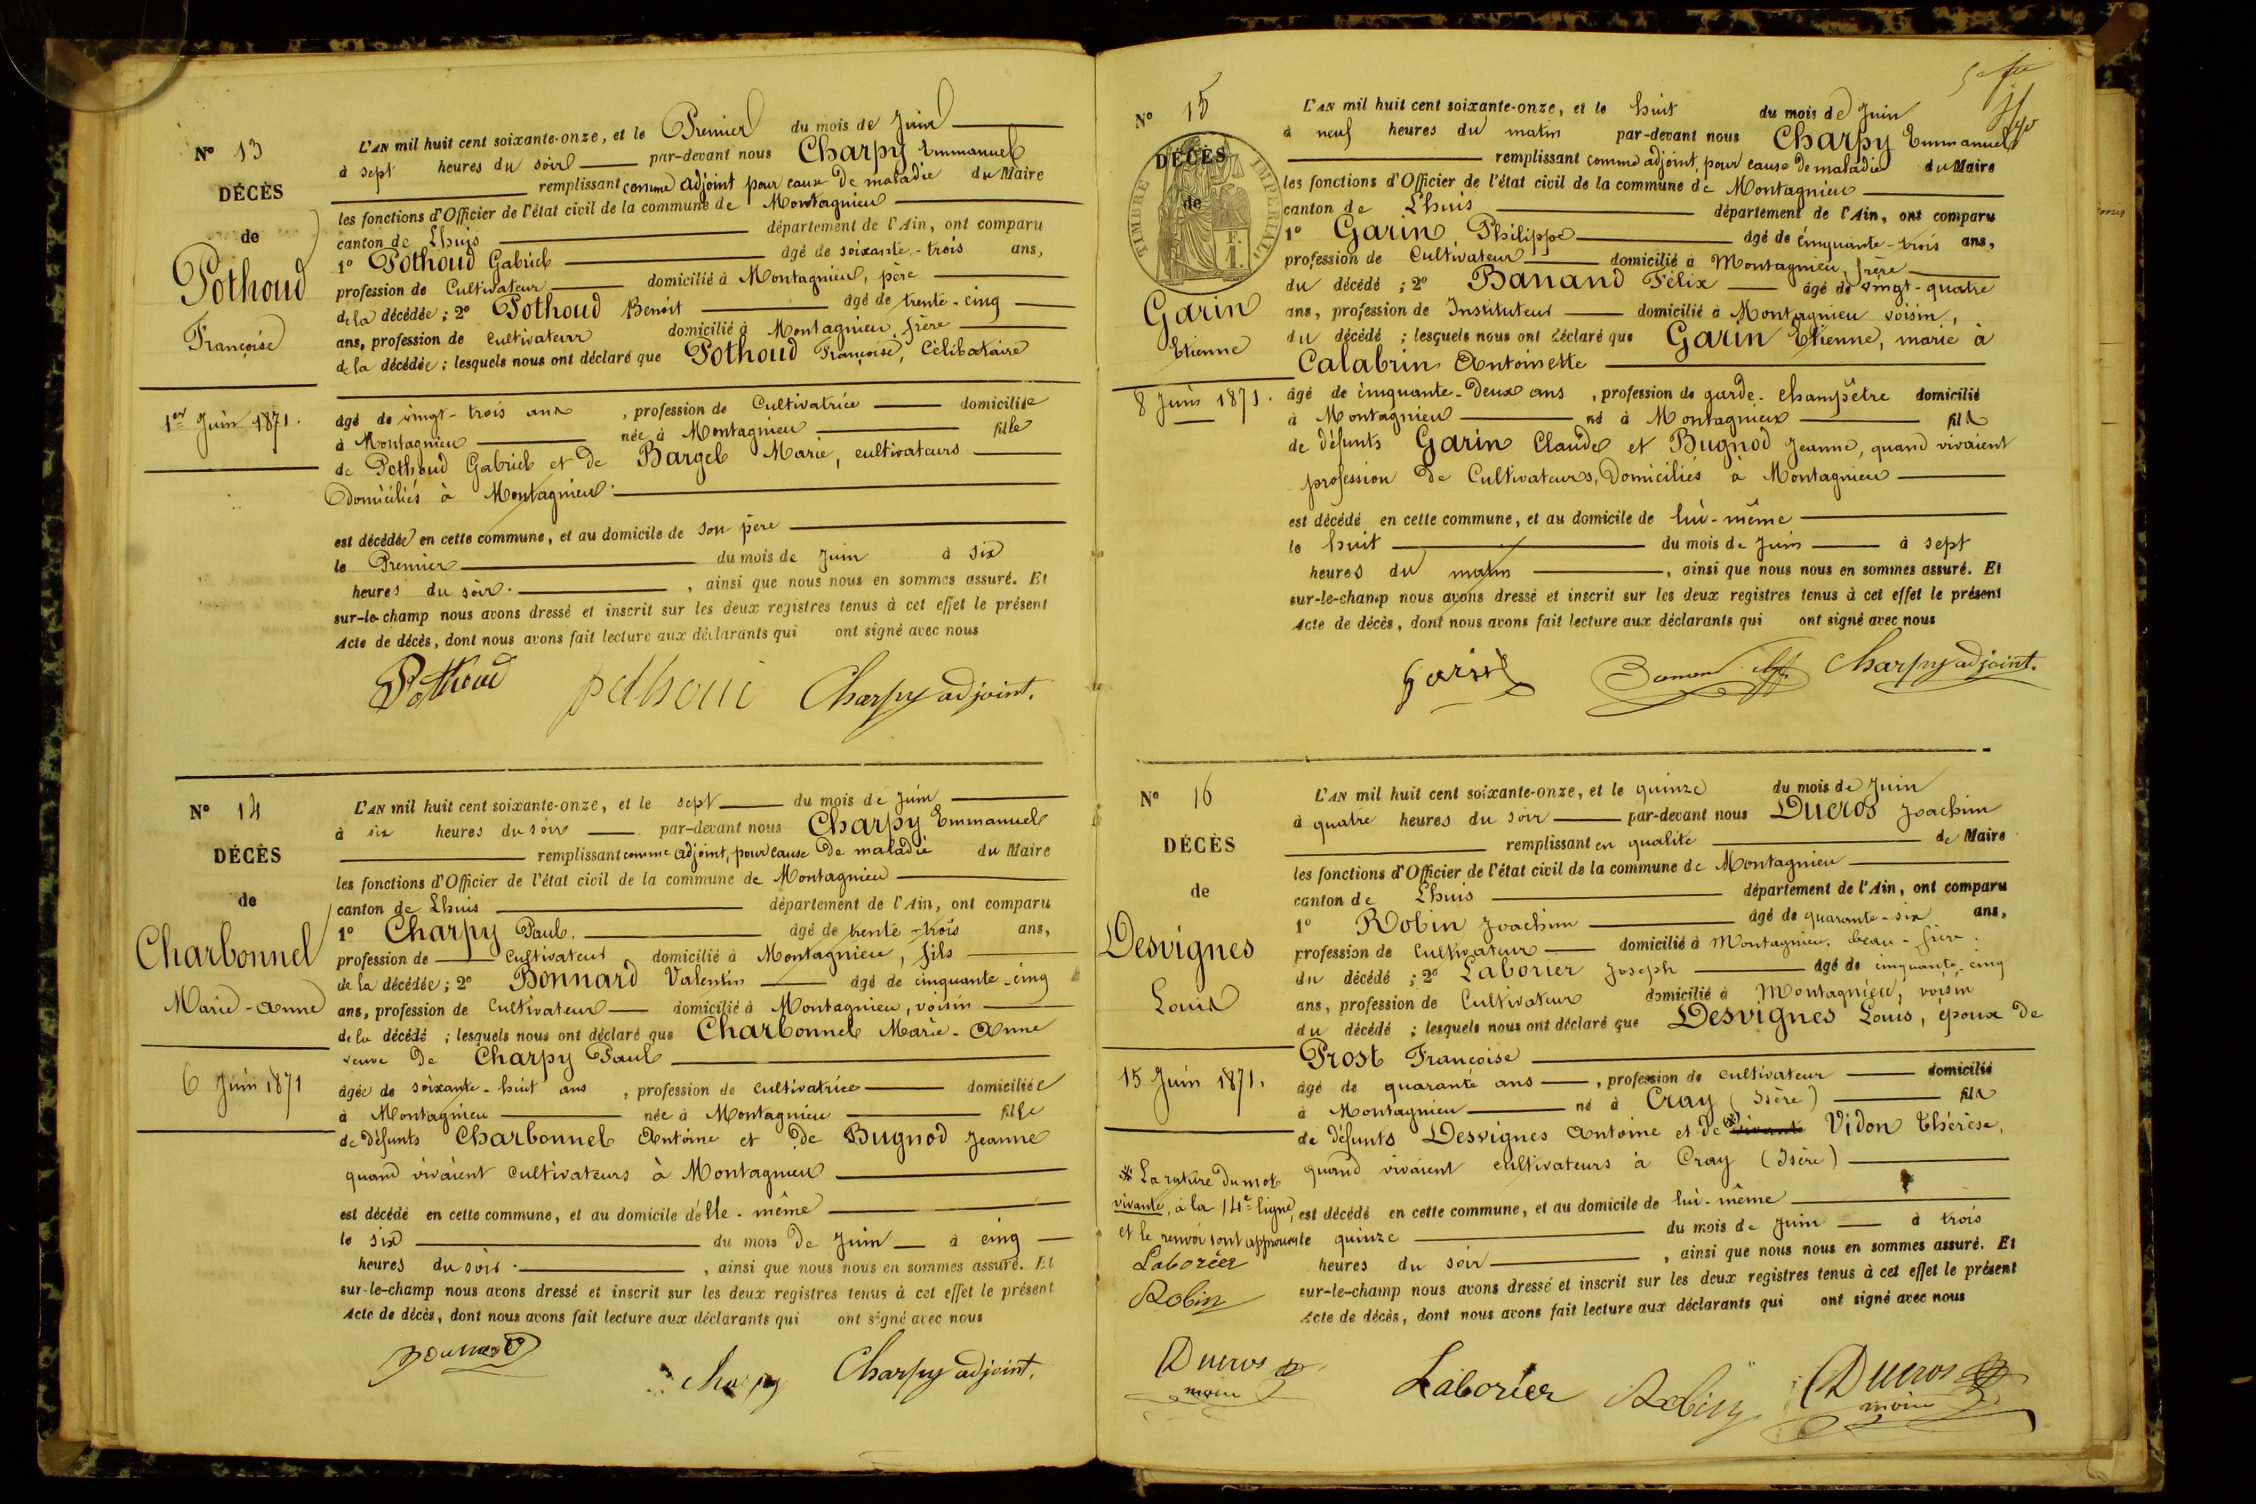 Nº 13
DÉCÈS
de
Pothoud
Françoise
1er Juin 1871.
L'AN mil huit cent soixante-onze, et le Premier du mois de Juin
à sept heures du soir par-devant nous Charpy Emmanuel
remplissant comme adjoint pour cause de maladie du Maire
les fonctions d'Officier de l'état civil de la commune de Montagnieu
canton de Lhuis département de l'Ain, ont comparu
1º Pothoud Gabriel âgé de soixante-trois ans,
profession de Cultivateur domicilié à Montagnieu, père
de la décédée ; 2º Pothoud Benoit âgé de trente-cinq
ans, profession de Cultivateur domicilié à Montagnieu, frère
de la décédée ; lesquels nous ont déclaré que Pothoud Françoise, Célibataire
âgé de vingt-trois ans, profession de Cultivatrice domiciliée
à Montagnieu née à Montagnieu fille
de Pothoud Gabriel et de Bargel Marie, cultivateurs
Domiciliés à Montagnieu.
est décédée en cette commune, et au domicile de son père
le Premier du mois de Juin à six
heures du soir. , ainsi que nous nous en sommes assuré. Et
sur-le-champ nous avons dressé et inscrit sur les deux registres tenus à cet effet le présent
Acte de décès, dont nous avons fait lecture aux déclarants qui ont signé avec nous
Pothoud Charpy adjoint.
Nº 14
DÉCÈS
de
Charbonnel
Marie-Anne
6 Juin 1871
L'AN mil huit cent soixante-onze, et le sept du mois de Juin
à six heures du soir par-devant nous Charpy Emmanuel
remplissant comme adjoint, pour cause de maladie du Maire
les fonctions d'Officier de l'état civil de la commune de Montagnieu
canton de Lhuis département de l'Ain, ont comparu
1º Charpy Paul. âgé de trente-trois ans,
profession de Cultivateur domicilié à Montagnieu, fils
de la décédée ; 2º Bonnard Valentin âgé de cinquante-cinq
ans, profession de Cultivateur domicilié à Montagnieu, voisin
de la décédé ; lesquels nous ont déclaré que Charbonnel Marie-Anne
veuve de Charpy Paul
âgée de soixante-huit ans , profession de cultivatrice domiciliée
à Montagnieu née à Montagnieu fille
de défunts Charbonnel Antoine et de Bugnod Jeanne
quand vivaient cultivateurs à Montagnieu
est décédé en cette commune, et au domicile d'elle-même
le six du mois de Juin à cinq
heures du soir. , ainsi que nous nous en sommes assuré. Et
sur-le-champ nous avons dressé et inscrit sur les deux registres tenus à cet effet le présent
Acte de décès, dont nous avons fait lecture aux déclarants qui ont signé avec nous
Charpy Charpy adjoint.
Nº 15
TIMBRE IMPÉRIAL
DÉCÈS
de
Garin
Etienne
8 Juin 1871.
L'AN mil huit cent soixante-onze, et le huit du mois de Juin
à neuf heures du matin par-devant nous Charpy Emmanuel
remplissant comme adjoint, pour cause de maladie du Maire
les fonctions d'Officier de l'état civil de la commune de Montagnieu
canton de Lhuis département de l'Ain, ont comparu
1º Garin Philippe âgé de cinquante-trois ans,
profession de Cultivateur domicilié à Montagnieu, frère
du décédé ; 2º Banand Félix âgé de vingt-quatre
ans, profession de Instituteur domicilié à Montagnieu voisin,
du décédé ; lesquels nous ont déclaré que Garin Etienne, marié à
Calabrin Antoinette
âgé de cinquante-deux ans , profession de garde-champêtre domicilié
à Montagnieu né à Montagnieu fils
de défunts Garin Claude et Bugnod Jeanne, quand vivaient
profession de Cultivateurs, Domiciliés à Montagnieu
est décédé en cette commune, et au domicile de lui-même
le huit du mois de Juin à sept
heures du matin , ainsi que nous nous en sommes assuré. Et
sur-le-champ nous avons dressé et inscrit sur les deux registres tenus à cet effet le présent
Acte de décès, dont nous avons fait lecture aux déclarants qui ont signé avec nous
Charpy adjoint.
Nº 16
DÉCÈS
de
Desvignes
Louis
15 Juin 1871.
L'AN mil huit cent soixante-onze, et le quinze du mois de Juin
à quatre heures du soir par-devant nous Ducros Joachim
remplissant en qualité de Maire
les fonctions d'Officier de l'état civil de la commune de Montagnieu
canton de Lhuis département de l'Ain, ont comparu
1º Robin Joachim âgé de quarante-six ans,
profession de Cultivateur domicilié à Montagnieu, beau-frère.
du décédé ; 2º Laborier Joseph âgé de cinquante-cinq
ans, profession de Cultivateur domicilié à Montagnieu, voisin
du décédé ; lesquels nous ont déclaré que Desvignes Louis, époux de
Prost Françoise
âgé de quarante ans , profession de cultivateur domicilié
à Montagnieu né à Cray (Isère) fils
de défunts Desvignes Antoine et de vivante Vidon Thérèse,
quand vivaient cultivateurs à Cray (Isère)
est décédé en cette commune, et au domicile de lui-même
le quinze du mois de Juin à trois
heures du soir , ainsi que nous nous en sommes assuré. Et
sur-le-champ nous avons dressé et inscrit sur les deux registres tenus à cet effet le présent
Acte de décès, dont nous avons fait lecture aux déclarants qui ont signé avec nous
* La rature du mot
vivante, à la 14e ligne,
et le renvoi sont approuvés
Laborier
Robin
Ducros
maire
Laborier Robin Ducros
maire